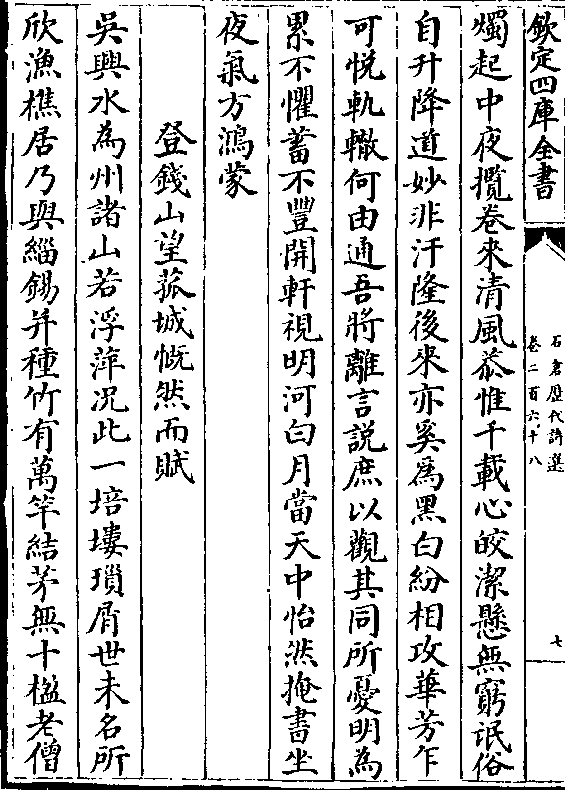 欽定四庫全書
石倉歴代詩選
卷二百六十八
七
燭起中夜攬卷來清風恭惟千載心皎潔懸無窮氓俗
自升降道妙非汙隆後來亦奚為黑白紛相攻華芳乍
可悦軌轍何由通吾將離言説庶以觀其同所憂明為
累不懼蓄不豐開軒視明河白月當天中怡然掩書坐
夜氣方鴻蒙
登錢山望菰城慨然而賦
吳興水為州諸山若浮萍况此一培塿瑣屑世未名所
欣漁樵居乃與緇錫并種竹有萬竿結茅無十楹老僧